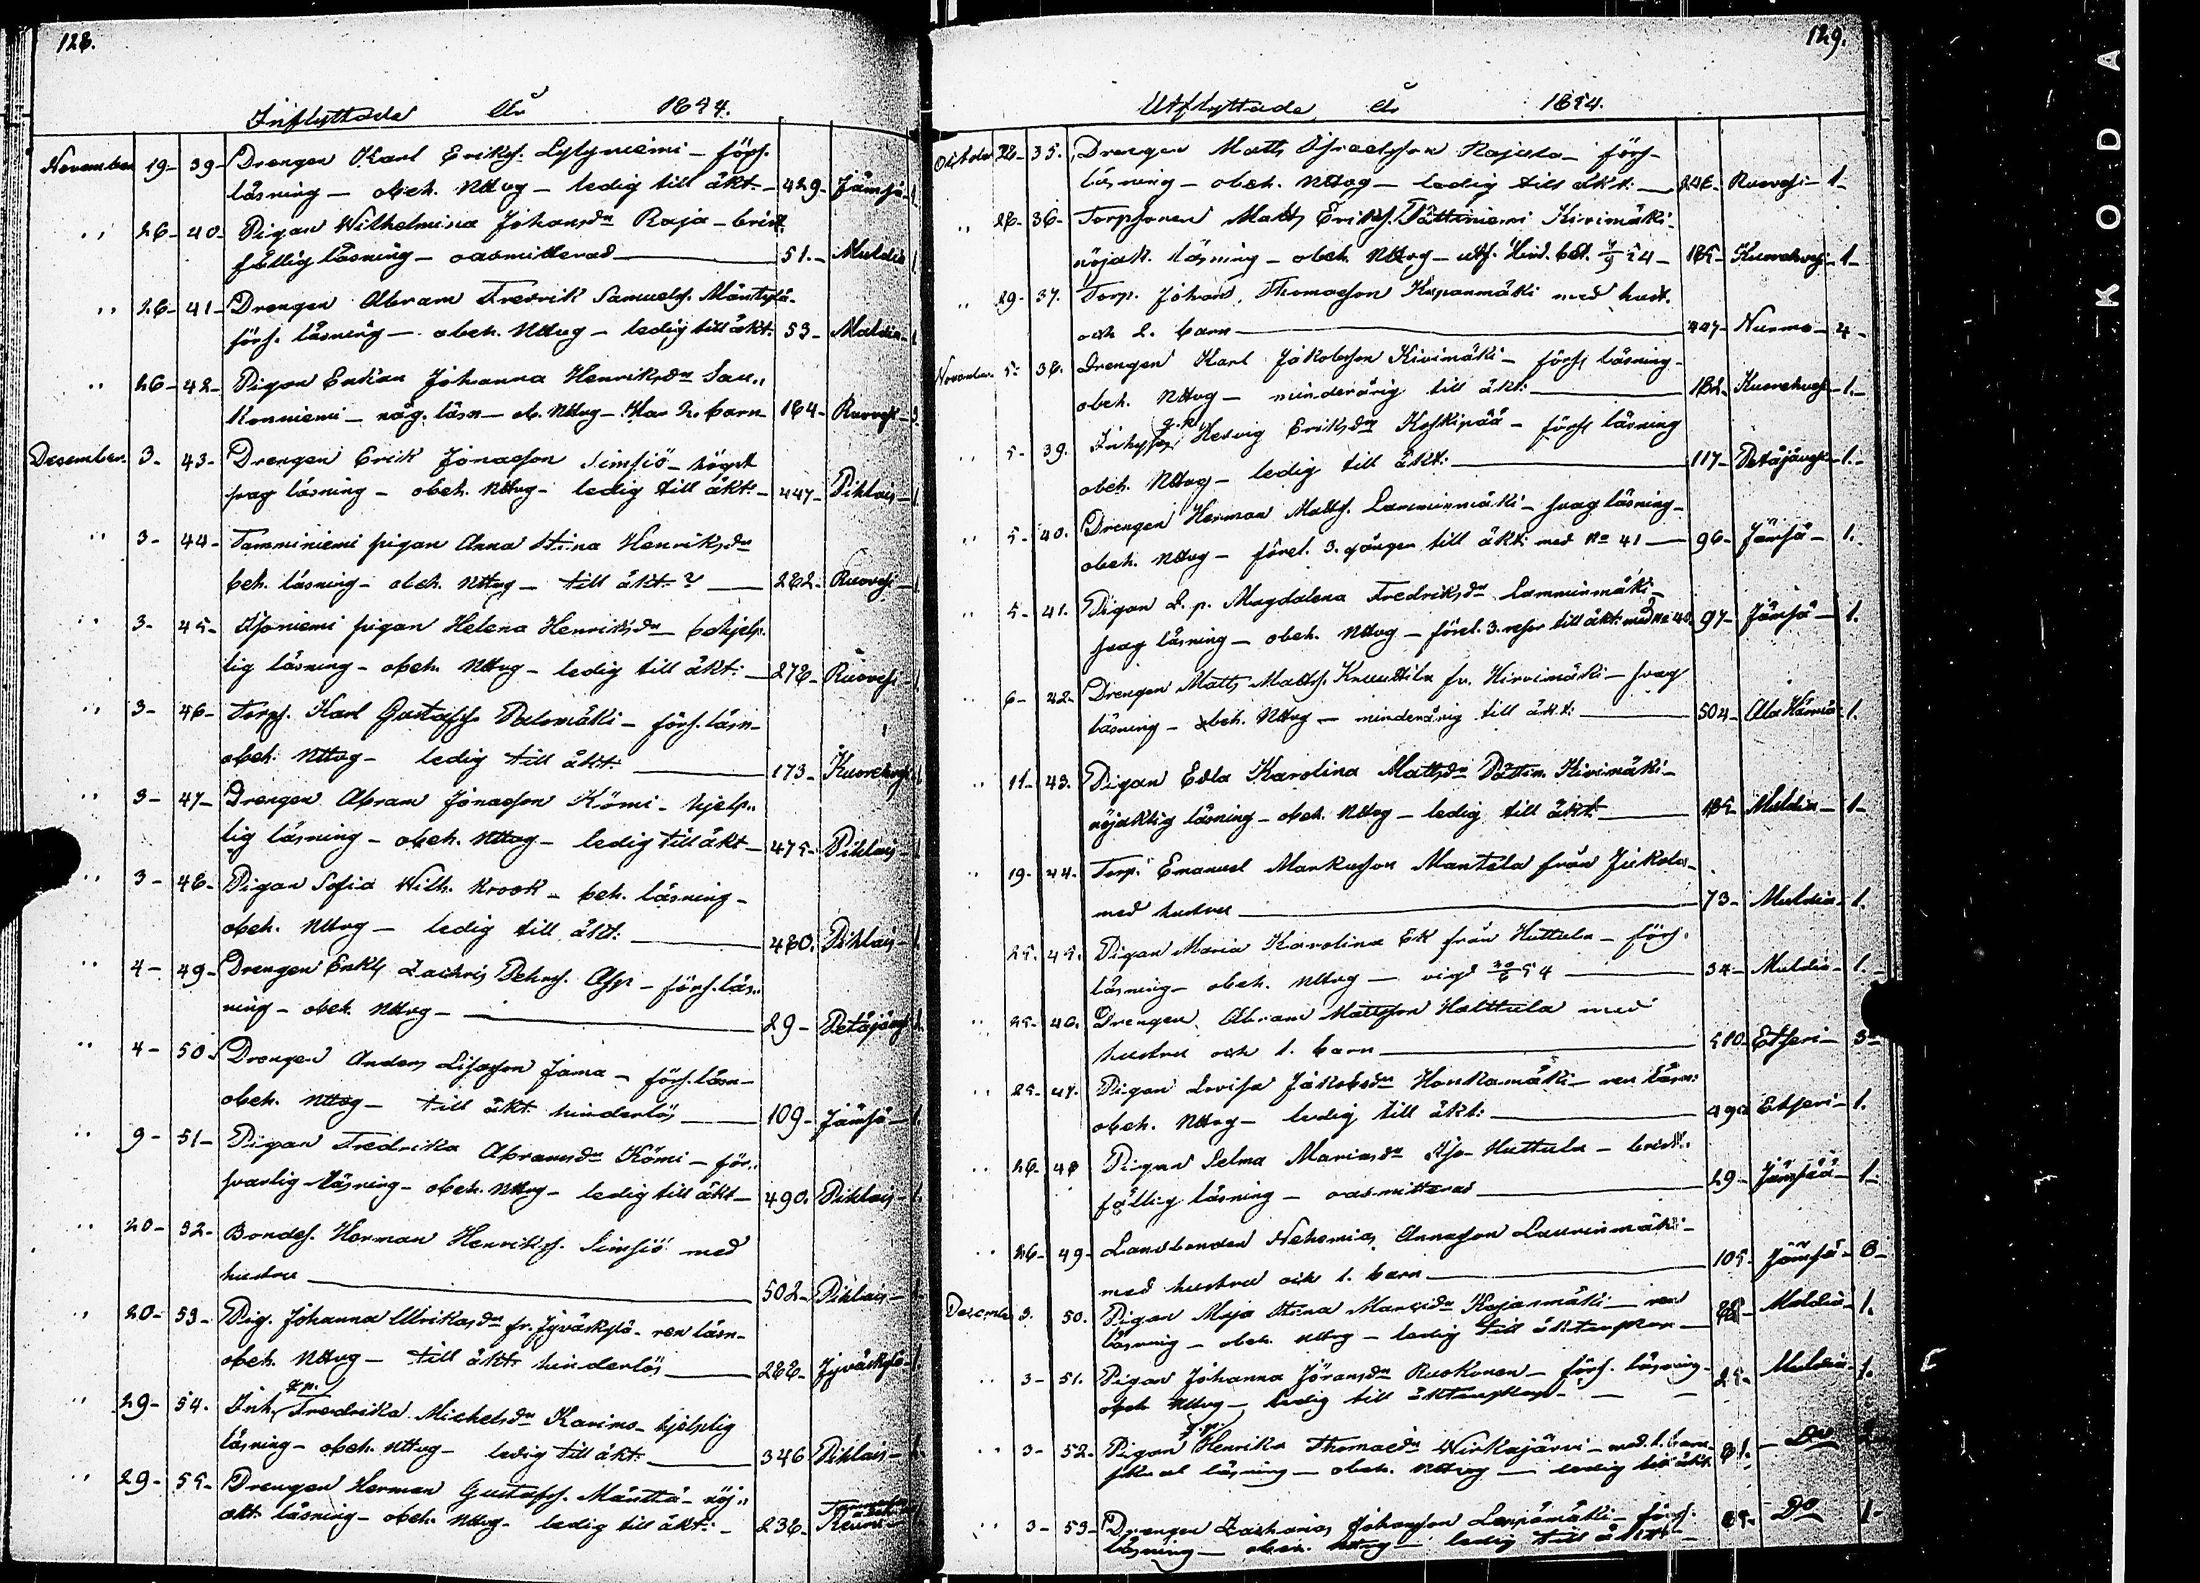 128.
Inflyttade År 1854.
November 19- 39- Drengen Karl Eriksf. Lylyniemi - förf.
läsning - obeh. Nttvg - ledig till äkt. - 429- Jämsä - 1
,, 26- 40- Pigan Wilhelmina Johansdr Raja - brist
fällig läsning - oadmitterad - 51. - Multia 1
,, 26- 41- Drengen Abram Fredrik Samuelsf. Mäntylä-
förf. läsning - obeh. Nttvg - ledig till äkt. 53- Multia - 1
,, 26- 42- Pigan Enkan Johanna Henriksdr Sau,,
konniemi - någ. läsn - ob. Nttvg - Har 2. barn - 164- Ruovesi - 3
Desember. 3- 43- Drengen Erik Jonasson Simsiö - högst
svag läsning - obeh. Nttvg - ledig till äkt. - 447- Pihlais - 1
,, 3- 44- Tamminiemi pigan Anna Stina Henriksdr
beh. läsning - obeh. Nttvg - till äkt. ? - 262- Ruovesi - 1
,, 3- 45- pigan Helena Henriksdr - behjelp.
lig läsning - obeh. Nttvg - ledig till äkt: - 278- Ruovesi - 1
,, 3- 46- Torp. Karl Gustafsf. Palomäki - förf. läsn-
obeh. Nttvg - ledig till äkt. - 173- Kuorehvesi - 1
,, 3- 47- Drengen Abram Jonasson Kömi - hjelp,,
lig läsning - obeh. Nttvg - ledig till äkt - 475- Pihlais - 1
,, 3- 48- Pigan Sofia Wilh. Krook - beh. läsning -
obeh. Nttvg - ledig till äkt. - 480. Pihlais - 1
,, 4- 49- Drengen Enkl. Zachris Asp - förf. läs,,
ning - obeh. Nttvg - 29- Petäjäv. 1.
,, 4- 50. Drengen Anders Jama - förf. läsn-
obeh. Nttvg - till äkt. hinderlös - 109- Jämsä - 1.
,, 9- 51- Pigan Fredrika Abramsdr Kömi - för,,
svarlig läsning - obeh. Nttvg - ledig till äkt - 490. Pihlais - 1.
,, 20- 52- Bondes. Herman Henriksf. Simsiö med
hustru - 502- Pihlais -
,, 20- 53- Pig. Johanna Ulrikasdr fr. Jyväskylä - ren läsn-
obeh. Nttvg - till äkt. hinderlös - 288- Jyväskylä - 1.
,, 29- 54. Inh. q.p. Fredrika Michelsdr Karimo - hjelplig
läsning - obeh. Nttvg - ledig till äkt. - 346 Pihlais - 1.
,, 29- 55- Drengen Herman Gustafsf. Mänttä - nöj,,
akt. läsning - obeh. Nttvg - ledig till äkt: - 236- Keuru
129.
Utflyttade År 1854.
Oktober 22- 35. Drengen Matts Israelsson Rajala - förf-
läsning - obeh. Nttvg - ledig till äkt: - 246- Ruovesi - 1-
,, 26- 36- Torpsonen Matts Eriksf. Pättiniemi Kivimäki-
nöjakt. läsning - obeh. Nttvg - 54 - 185- Kuorehvesi - 1-
,, 29- 37. Torp. Johan Thomasson Kupanmäki med hust.
och 2. barn - 447- Nurmo - 4-
November. 5- 38. Drengen Karl Jakobsson Kivimäki - förf. läsning -
obeh. Nttvg - minderårig till äkt: - 182- Kuorehvesi - 1.-
,, 5- 39. Inhyses g.p. Hedvig Eriksdr Koskipää - förf. läsning
obeh. Nttvg - ledig till äkt: - 117- Petäjävesi - 1.-
,, 5- 40. Drengen Herman Mattsf. Lamminmäki - svag läsning -
obeh. Nttvg - förel. 3. gången till äkt: med No 41 - 96- Jämsä - 1.
,, 5- 41. Pigan L. p. Magdalena Fredriksdr Lamminmäki -
svag läsning - obeh. Nttvg - förel. 3. resor till äkt: med No 40. 97- Jämsä - 1.
,, 6- 42- Drengen Matts Mattsf. Knuutila fr. Hirvimäki - svag
läsning - obeh. Nttvg - minderårig till äkt: - 504- Ala Härmä 1.
,, 11- 43. Pigan Edla Karolina Mattsdr Pättin. Kivimäki -
nöjaktig läsning - obeh. Nttvg - ledig till äkt. - 185 Multia - 1-
,, 19- 44. Torp. Emanuel Markusson Mantila från Jukola -
med hustru - 73- Multia - 1.
25. 45. Pigan Maria Karolina Ek från Huttula - förf.
läsning - obeh. Nttvg - vigd 20/6 54 - 34- Multia - 1.-
,, 25- 46. Drengen Abram Mattsson Halttula med
hustru och 1. barn - 510- Etseri - 3-
,, 25- 47. Pigan Lovisa Jakobsdr Honkamäki - ren läsn:
obeh. Nttvg - ledig till äkt: - 492 Etseri - 1.
,, 26- 48 Pigan Selma Mariasdr Huttula - brist,,
fällig läsning - oadmitterad - 29- Jämsä - 1-
,, 26- 49- Landbonden Nehemias Annasson Laurinmäki -
med hustru och 1. barn - 105- Jämsä -
Desember 3. 50. Pigan Maja Stina Kajanmäki - ren
läsning - obeh. Nttvg - ledig till äktenskap - Multia - 1.
,, 3- 51. Pigan Johanna Jöransdr Ruokonen - förf. läsning -
obeh Nttvg - ledig till äktenskap - 25- Multia - 1.
,, 3- 52- Pigan g.p. Henrika Thomasdr Wirkajärvi - med 1. barn -
läsning - obeh. Nttvg - ledig till äkt. 81. - Do 2
,, 3- 53- Drengen Zacharias Johansson Leppämäki - förf.
läsning - obeh. Nttvg - ledig till äkt: - 65- Do 1-
KODA